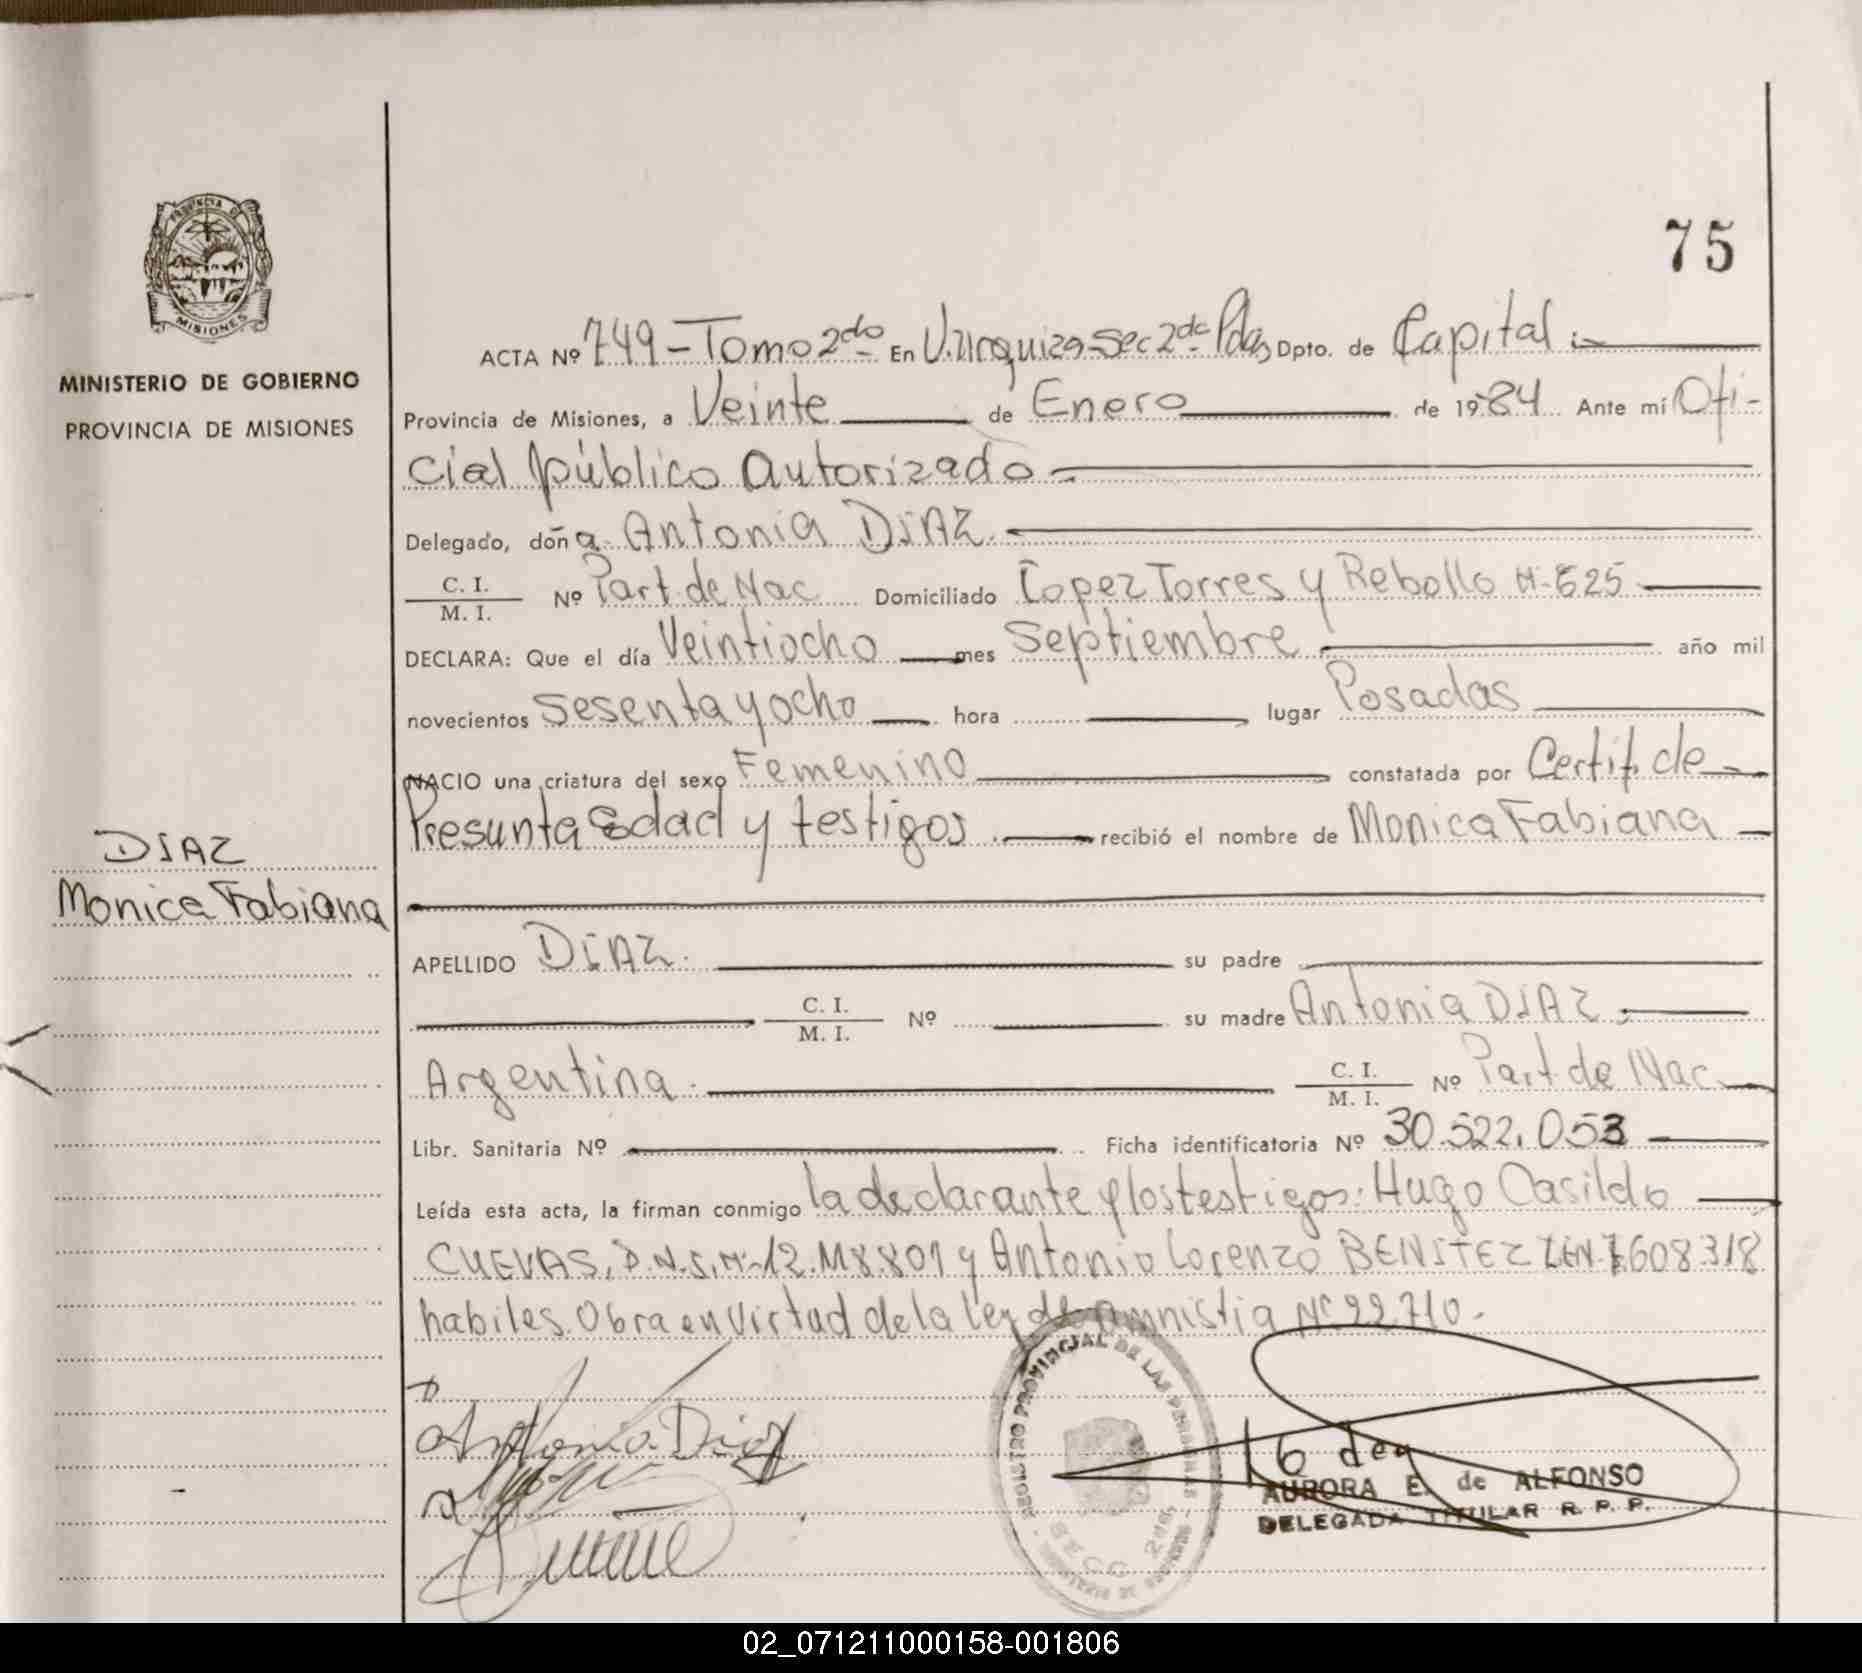 75
PROVINCIA DE
MISIONES
MINISTERIO DE GOBIERNO
PROVINCIA DE MISIONES
DIAZ
Monica Fabiana
ACTA Nº 749 - Tomo 2do En V. Urquiza Sec 2da Pdas Dpto. de Capital
Provincia de Misiones, a Veinte de Enero de 1984 Ante mí Ofi-
cial público Autorizado
Delegado, doña Antonia DIAZ.
C. I.
M. I. Nº Part. de Nac Domiciliado Lopez Torres y Rebollo Nº 525
DECLARA: Que el día Veintiocho mes Septiembre año mil
novecientos sesenta y ocho hora lugar Posadas
NACIO una criatura del sexo Femenino constatada por Certif. de
Presunta Edad y testigos. recibió el nombre de Monica Fabiana
APELLIDO DIAZ. su padre
C. I.
M. I. Nº su madre Antonia DIAZ.
Argentina. C. I.
M. I. Nº Part. de Nac.
Libr. Sanitaria Nº Ficha identificatoria Nº 30.522.053
Leída esta acta, la firman conmigo la declarante y los testigos: Hugo Casildo
CUEVAS, D.N.I. Nº y Antonio Lorenzo BENITEZ 7.608.318
habiles. Obra en Virtud de la ley de amnistia Nº 22.710.-
Antonia Diaz
REGISTRO PROVINCIAL DE LAS PERSONAS
SECC 2da
AURORA E. de ALFONSO
DELEGADA TITULAR R. P. P.
02_071211000158-001806